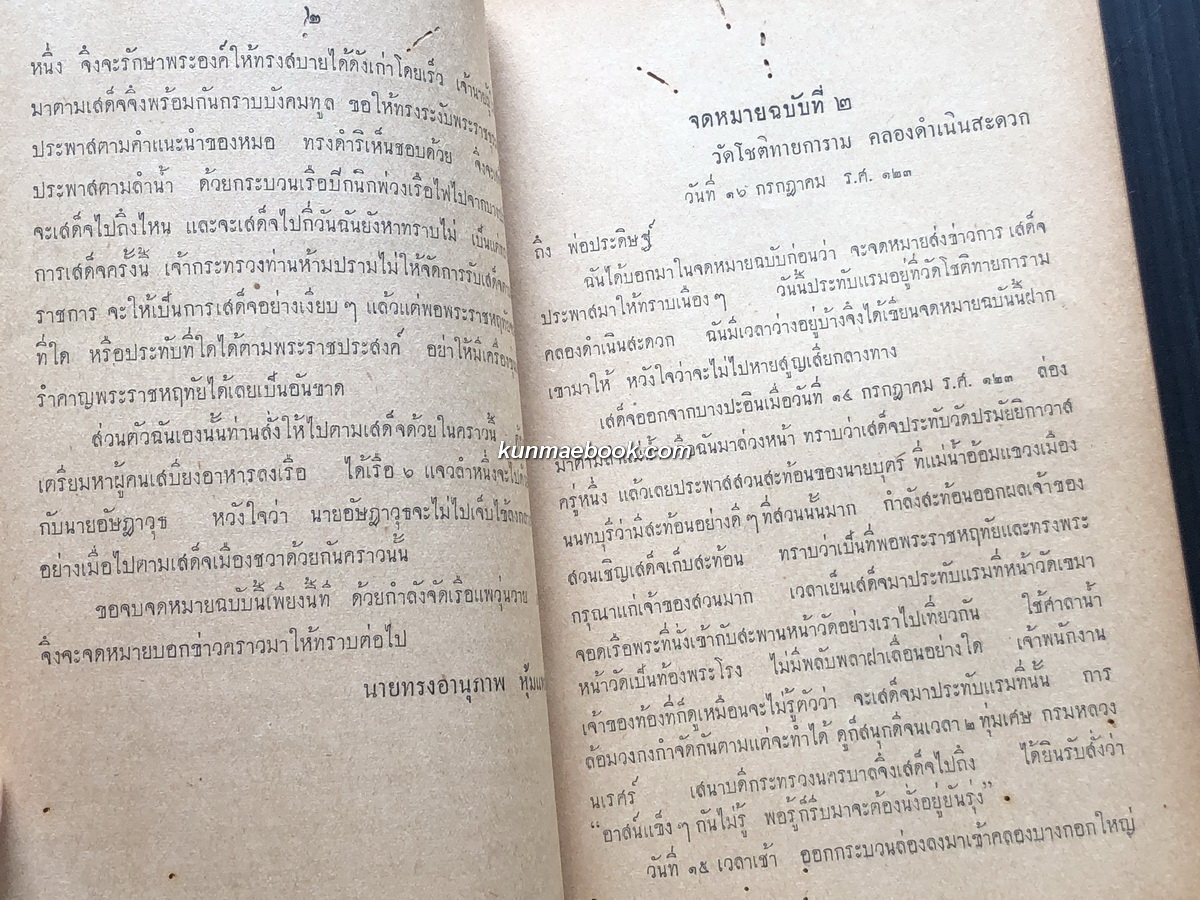 ๒
หนึ่ง จึงจะรักษาพระองค์ให้ทรงสบายได้ดังเก่าโดยเร็ว
มาตามเสด็จจึงพร้อมกันกราบบังคมทูล ขอให้ทรงระงับ
ประพาสตามคำแนะนำของหมอ ทรงดำริเห็นชอบด้วย
ประพาสตามลำน้ำ ด้วยกระบวนเรือปิกนิกพ่วงเรือไฟไปจาก
จะเสด็จไปถึงไหน และจะเสด็จไปกี่วันฉันยังหาทราบไม่
การเสด็จครั้งนี้ เจ้ากระทรวงท่านห้ามปรามไม่ให้จัดการรับเสด็จ
ราชการ จะให้เป็นการเสด็จอย่างเงียบ ๆ แล้วแต่พอพระราชหฤทัย
ที่ใด หรือประทับที่ใดได้ตามพระราชประสงค์ อย่าให้มีเครื่อง
รำคาญพระราชหฤทัยได้เลยเป็นอันขาด
ส่วนตัวฉันเองนั้นท่านสั่งให้ไปตามเสด็จด้วยในคราวนี้
เตรียมหาผู้คนเสบียงอาหารลงเรือ ได้เรือ ๖ แจวลำหนึ่งจะไป
กับนายอัษฎาวุธ หวังใจว่า นายอัษฎาวุธจะไม่ไปเจ็บไข้ลง
อย่างเมื่อไปตามเสด็จเมืองชวาด้วยกันคราวนั้น
ขอจบจดหมายฉบับนี้เพียงนี้ที ด้วยกำลังจัดเรือแพวุ่นวาย
จึงจะจดหมายบอกข่าวคราวมาให้ทราบต่อไป
นายทรงอานุภาพ
จดหมายฉบับที่ ๒
วัดโชติทายการาม คลองดำเนินสะดวก
วันที่ ๑๖ กรกฎาคม ร.ศ. ๑๒๓
ถึง พ่อประดิษฐ์
ฉันได้บอกมาในจดหมายฉบับก่อนว่า จะจดหมายส่งข่าวการ เสด็จ
ประพาสมาให้ทราบเนือง ๆ วันนี้ประทับแรมอยู่ที่วัดโชติทายการาม
คลองดำเนินสะดวก ฉันมีเวลาว่างอยู่บ้างจึงได้เขียนจดหมายฉบับนี้ฝาก
เขามาให้ หวังใจว่าจะไม่ไปหายสูญเสียกลางทาง
เสด็จออกจากบางปะอินเมื่อวันที่ ๑๔ กรกฎาคม ร.ศ. ๑๒๓ ล่อง
มาตามลำแม่น้ำ เรือฉันมาล่วงหน้า ทราบว่าเสด็จประทับวัดปรมัยยิกาวาส
kunmaebook.com
ครู่หนึ่ง แล้วเลยประพาสสวนสะท้อนของนายบุตร์ ที่แม่น้ำอ้อมแขวงเมือง
นนทบุรีว่ามีสะท้อนอย่างดี ๆ ที่สวนนั้นมาก กำลังสะท้อนออกผลเจ้าของ
สวนเชิญเสด็จเก็บสะท้อน ทราบว่าเป็นที่พอพระราชหฤทัยและทรงพระ
กรุณาแก่เจ้าของสวนมาก เวลาเย็นเสด็จมาประทับแรมที่หน้าวัดเขมา
จอดเรือพระที่นั่งเข้ากับสะพานหน้าวัดอย่างเราไปเที่ยวกัน ใช้ศาลาน้ำ
หน้าวัดเป็นท้องพระโรง ไม่มีพลับพลาฝาเลื่อนอย่างใด เจ้าพนักงาน
เจ้าของท้องที่ก็ดูเหมือนจะไม่รู้ตัวว่า จะเสด็จมาประทับแรมที่นั้น การ
ล้อมวงกงกำจัดกันตามแต่จะทำได้ ดูก็สนุกดีจนเวลา ๒ ทุ่มเศษ กรมหลวง
นเรศร์ เสนาบดีกระทรวงนครบาลจึงเสด็จไปถึง ได้ยินรับสั่งว่า
“อาสน์แข็ง ๆ กันไม่รู้ พอรู้ก็รีบมาจะต้องนั่งอยู่ยันรุ่ง”
วันที่ ๑๕ เวลาเช้า ออกกระบวนล่องลงมาเข้าคลองบางกอกใหญ่